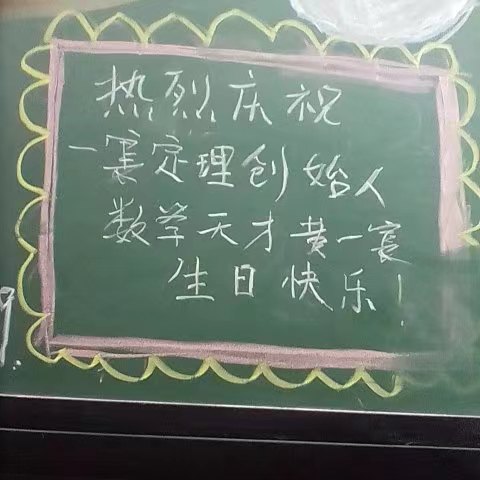 热烈庆祝
一寞定理创始人
数学天才黄一寞
生日快乐!